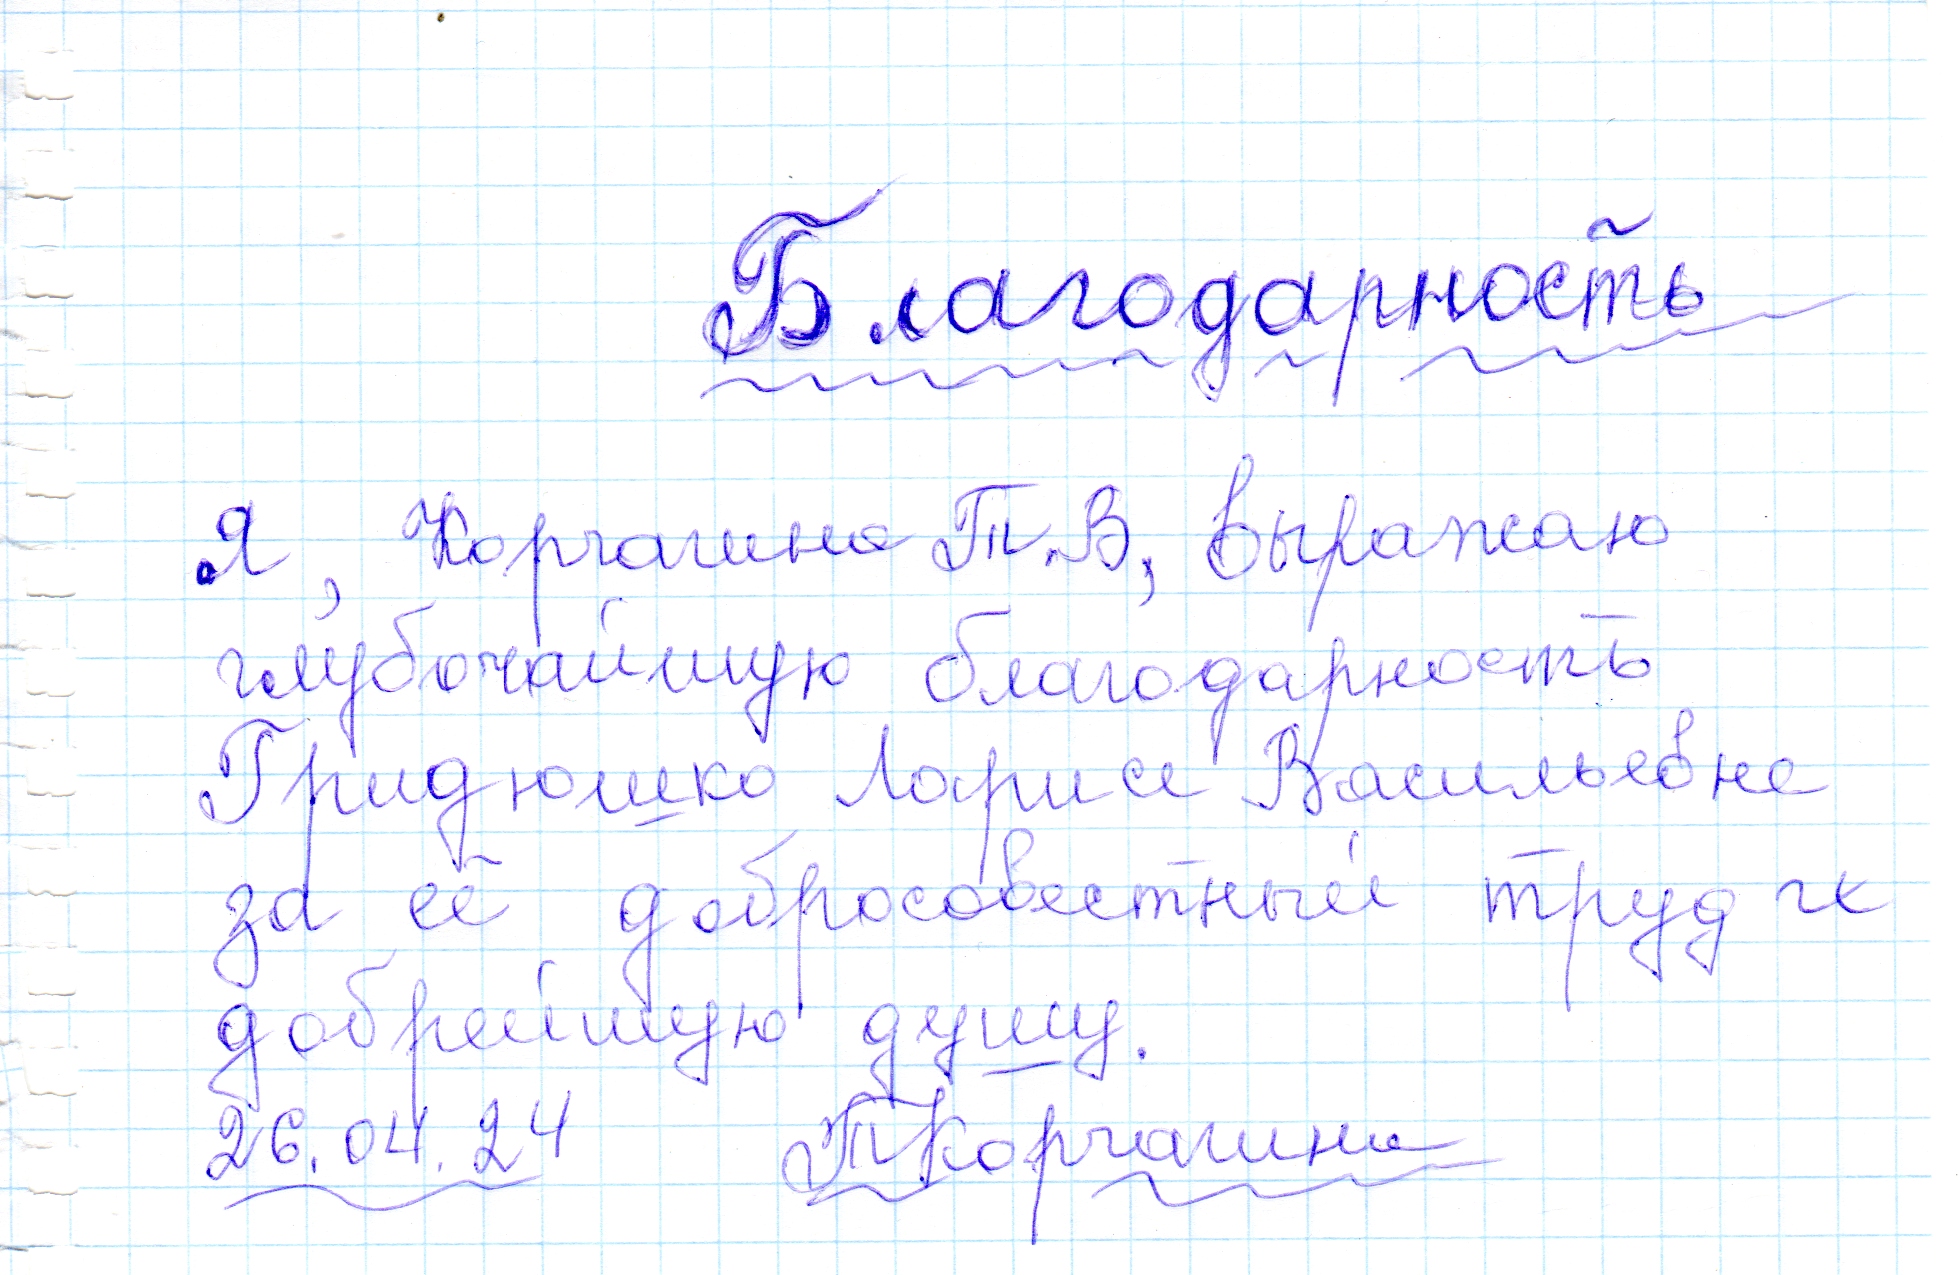 Благодарность
Я, Корчагина Т.В, выражаю
глубочайшую благодарность
Гридюшко Ларисе Васильевне
за её добросовестный труд и
добрейшую душу.
26.04.24 ТКорчагина